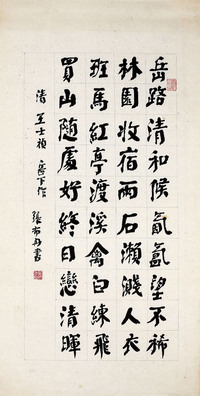 岳路清和候氤氳望不稀
林園收宿雨石瀨濺人衣
班馬紅亭渡溪禽白練飛
買山隨處好終日戀清暉
清 王士禎 岳下作 張 書